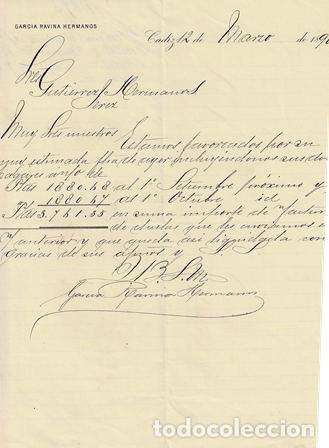 GARCIA RAVINA HERMANOS
Cadiz 12 de Marzo de 189
Sres
Gutierrez Hermanos
Jerez
Muy Sres nuestros Estamos favorecidos por su
muy estimada fha de ayer incluyéndonos sus dos
pagares uno de
Ptas 1880.68 al 1º Setiembre próximo y
1880.67 al 1º Octubre id
3.761.35 en suma importe de
de duelas que les enviamos
anterior y que queda así liquidada con
gracias de sus afmos y
S.M.
García Ravina Hermanos
todocoleccion.net